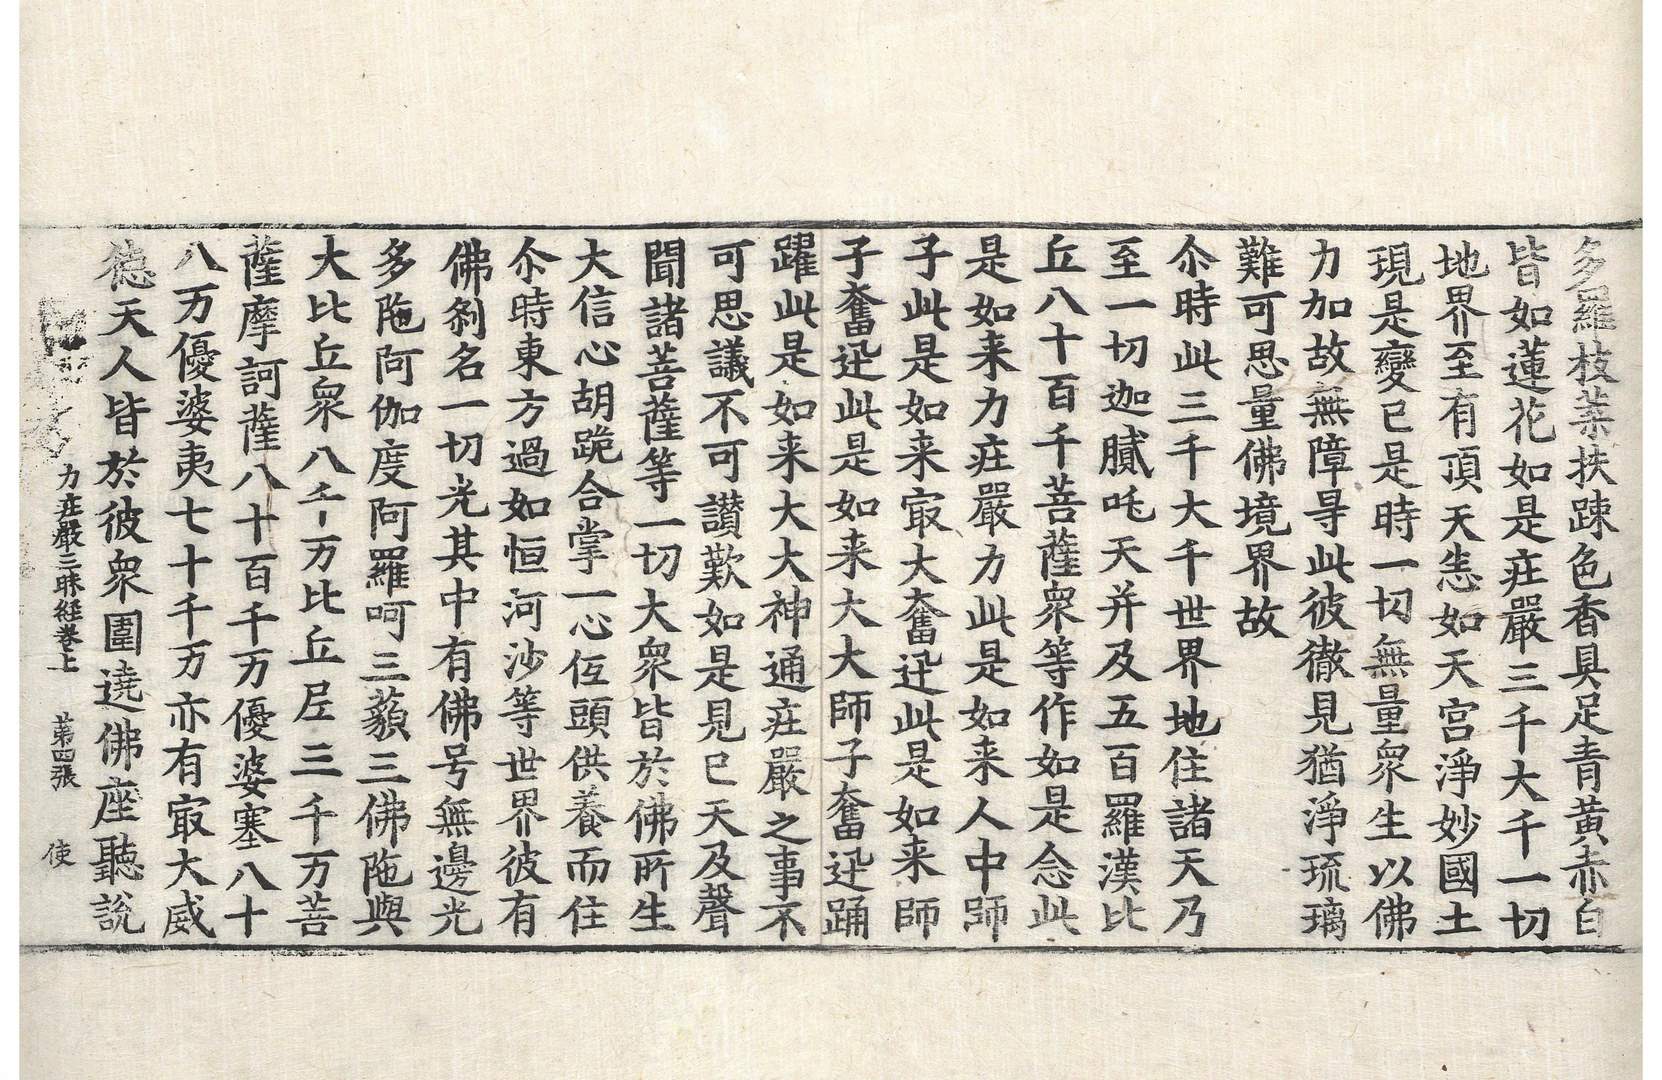 多羅枝葉扶踈色香具足青黃赤白
皆如蓮花如是㽵嚴三千大千一切
地界至有頂天㤪如天宮淨妙國土
現是變已是時一切無量衆生以佛
力加故無障㝵此彼徹見猶淨琉璃
難可思量佛境界故
尒時此三千大千世界地住諸天乃
至一切迦膩吒天并及五百羅漢比
丘八十百千菩薩衆等作如是念此
是如来力㽵嚴力此是如来人中師
子此是如来㝡大奮迅此是如来師
子奮迅此是如来大大師子奮迅踊
躍此是如来大大神通㽵嚴之事不
可思議不可讃歎如是見已天及聲
聞諸菩薩等一切大衆皆於佛所生
大信心胡跪合掌一心伍頭供養而住
尒時東方過如恒河沙等世界彼有
佛刹名一切光其中有佛号無邊光
多陁阿伽度阿羅呵三藐三佛陁與
大比丘衆八千万比丘尼三千万菩
薩摩訶薩八十百千万優婆塞八十
八万優婆夷七十千万亦有㝡大威
德天人皆於彼衆圍遶佛座聽說
力㽵嚴三昧經卷上 第四張 使